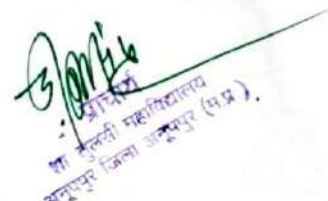 प्राचार्य
शा तुलसी महाविद्यालय
अनूपपुर जिला अनूपपुर (म.प्र.).